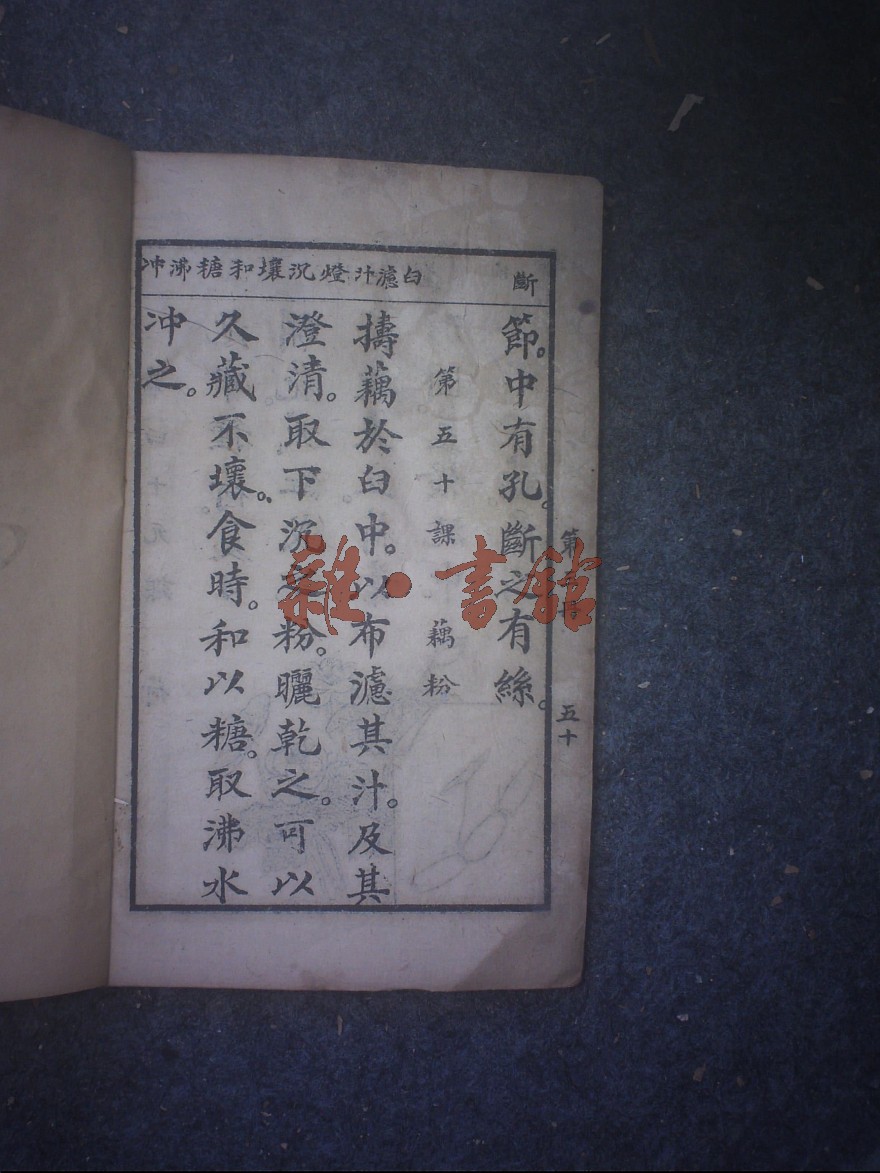 斷　臼濾汁澄沉壞和糖沸冲
節。中有孔。斷之有絲。
第五十課　藕粉
擣藕於臼中。以布濾其汁。及其
澄清。取下沉之粉。曬乾之。可以
久藏不壞。食時。和以糖。取沸水
冲之。
第
五十
雜·書館